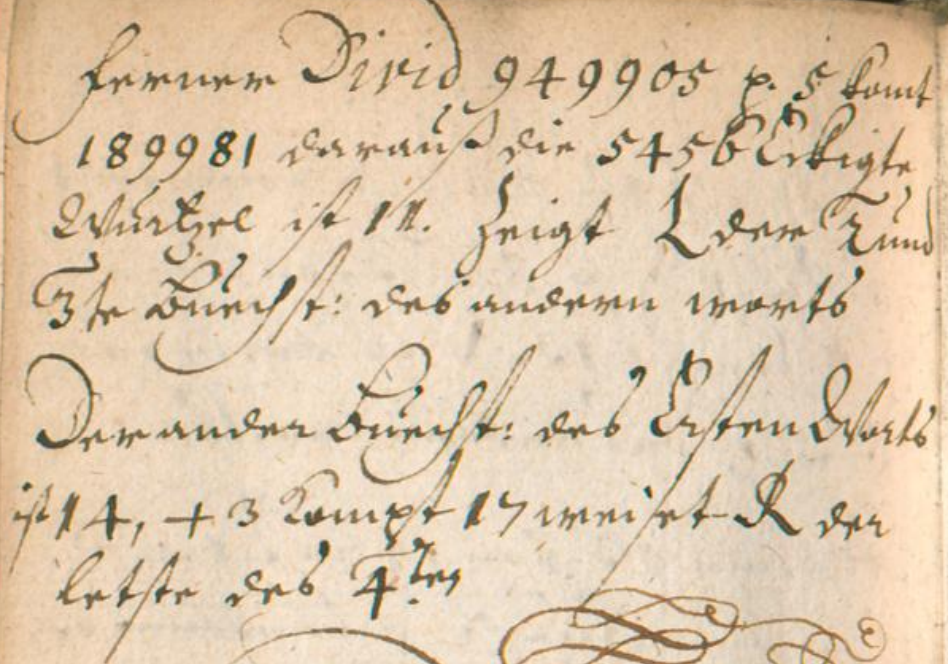 ferner Divid 949905 p. 5 komt
189981 darauß die 3456 Eckigte
Wurtzel ist 11. Zeigt L der 2 und
3te Buechst: des andern worts
Der ander Buechst: des Ersten Worts
ist 14, + 3 kompt 17 weiset R der
letste des 4ten